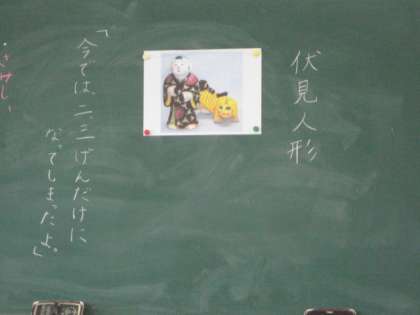 伏見人形
「今では、二、三げんだけに
なってしまったよ。」